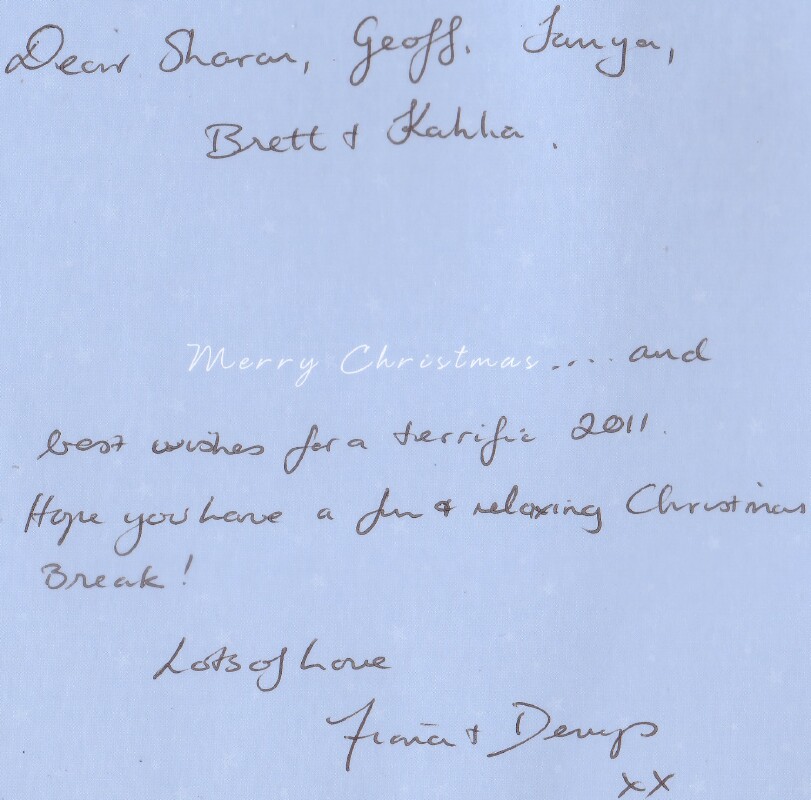 Dear Sharan, Geoff. Tanya,
Brett & Kahlia.
Merry Christmas.... and
best wishes for a terrific 2011.
Hope you have a fun & relaxing Christmas
Break!
Lots of Love
Fiona & Denys
xx